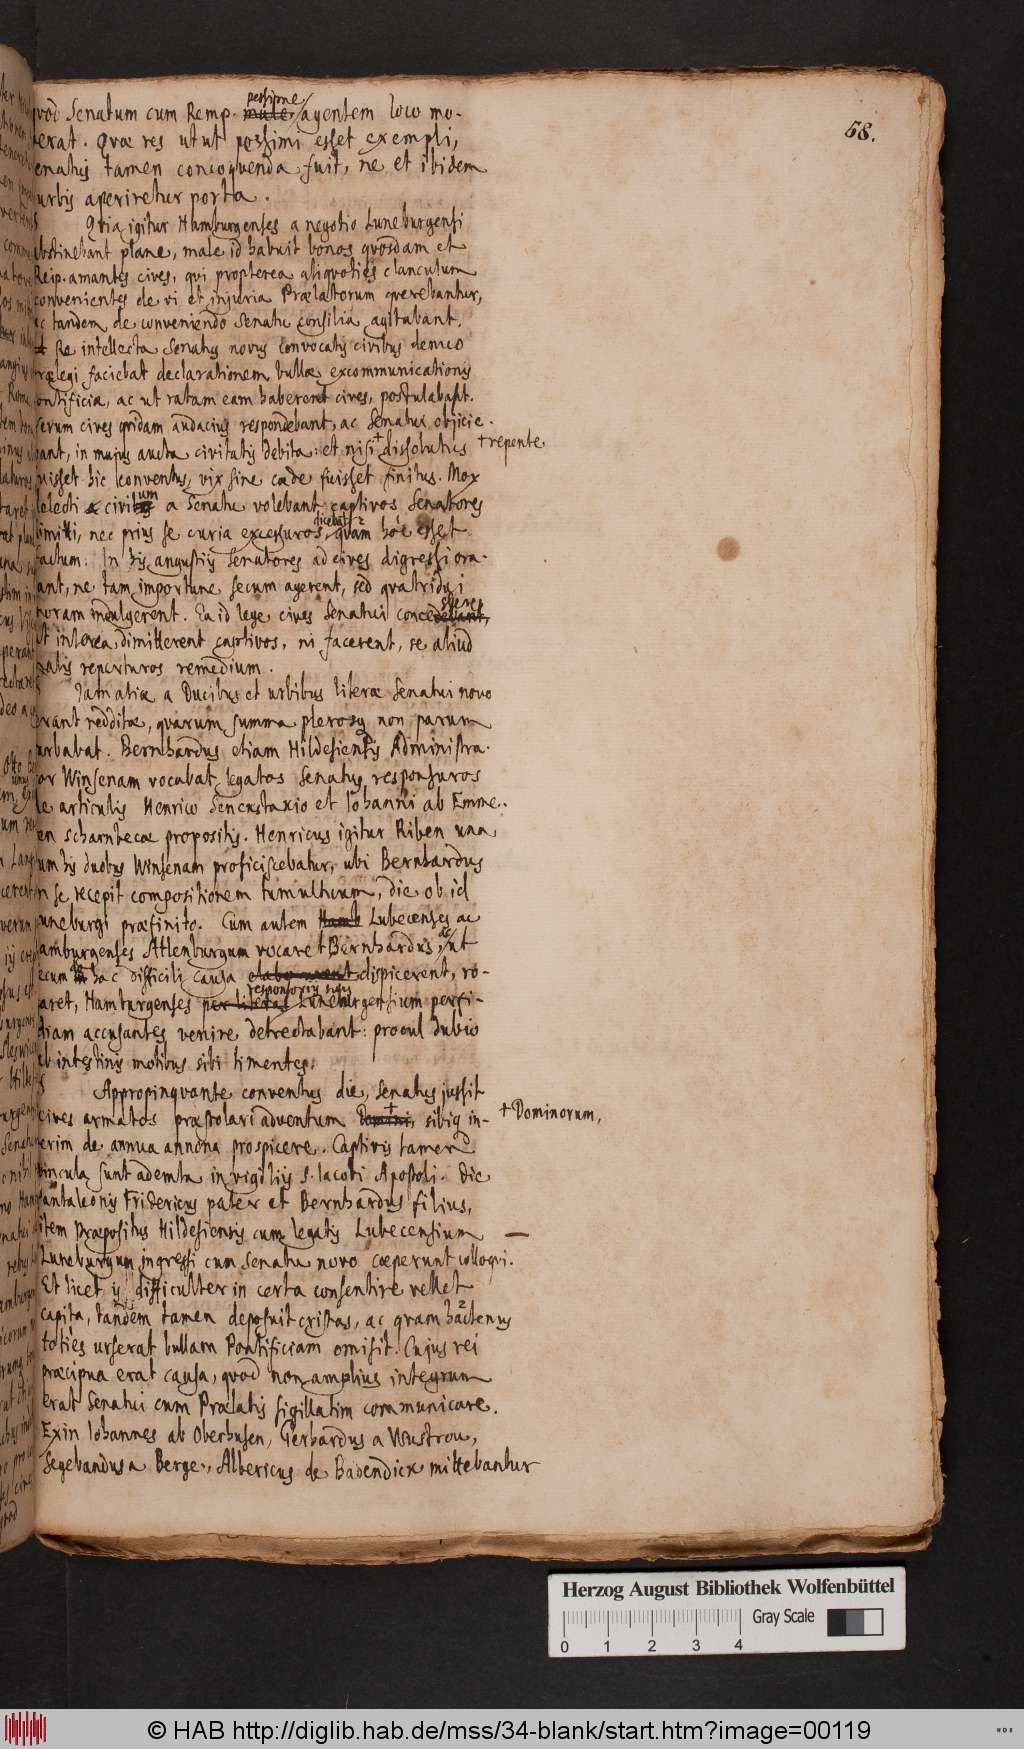 58.
pessime
vod Senatum cum Remp. male agentem loco mo-
erat. Qvæ res ut ut pessimi esset exempli,
enatus tamen concoqvenda fuit, ne et ibidem
urbis aperiretur porta.
Qvia igitur Hamburgenses a negotio Luneburgensi
abstinebant plane, male id habuit bonos qvosdam et
Reip. amantes cives, qvi propterea aliqvoties clanculum
convenientes de vi et injuria Prælatorum qverebantur,
ac tandem de conveniendo Senatu consilia agitabant.
Re intellecta Senatus novus convocatis civibus denuo
rælegi faciebat declarationem bullæ excommunicationis
ontificiæ, ac ut ratam eam haberent cives, postulabat.
erum cives qvidam audacius respondebant, ac Senatui objicie-
bant, in majus aucta civitatis debita: et nisi + dissolutus + repente
uisset hic conventus, vix sine cæde fuisset finitus. Mox
delecti civium a Senatu volebant captivos Senatores
dimitti, nec prius se curia excessuros dicebat qvam hoc esset
actum. In his angustiis Senatores ad cives digressi ora-
ant, ne tam importune secum agerent, sed qvatridui
moram indulgerent. Ea id lege cives Senatui concedebant,
ut interea dimitterent captivos, ni facerent, se aliud
malis reperturos remedium.
Jam aliæ a Ducibus et urbibus literæ Senatui novo
erant redditæ, qvarum summa plerosq non parum
urbabat. Bernhardus etiam Hildesiensis Administra-
or Winsenam vocabat legatos Senatus, responsuros
de articulis Henrico Sencustaxio et Iohanni ab Emme-
en scharnbecæ propositis. Henricus igitur Riben una
um his duobus Winsenam proficiscebatur, ubi Bernhardus
in se recepit compositionem tumultuum, die ob id
uneburgi præfinito. Cum autem Hamb Lubecenses ac
amburgenses Atlenburgum vocaret Bernhardus, ac ut
ecum in hac difficili causa dispicerent, ro-
aret, Hamburgenses per literas responsoriis suis Luneburgensium perfi-
diam accusantes venire detrectabant: procul dubio
ab intestinis motibus sibi timentes.
Appropinqvante conventus die, Senatus jussit
cives armatos præstolari adventum Domini, + sibiq in- + Dominorum,
erim de annua annona prospicere. Captivis tamen
vincula sunt ademta in vigiliis S. Iacobi Apostoli. Die
Pantaleonis Fridericus pater et Bernhardus filius,
item Præpositus Hildesiensis cum legatis Lubecensium
Luneburgum ingressi cum Senatu novo cæperunt colloqvi.
Et licet ij difficulter in certa consentire vellet
capita, tandem tamen deposuit cristas, ac qvam hactenus
toties urserat bullam Pontificiam omisit. Cujus rei
præcipua erat causa, qvod non amplius integrum
erat Senatui cum Prælatis sigillatim communicare.
Exin Iohannes ab Oberhusen, Gerhardus a Wustrow,
Segebandus a Berge, Albericus de Bodendick mittebantur
Herzog August Bibliothek Wolfenbüttel
Gray Scale
0 1 2 3 4
© HAB http://diglib.hab.de/mss/34-blank/start.htm?image=00119